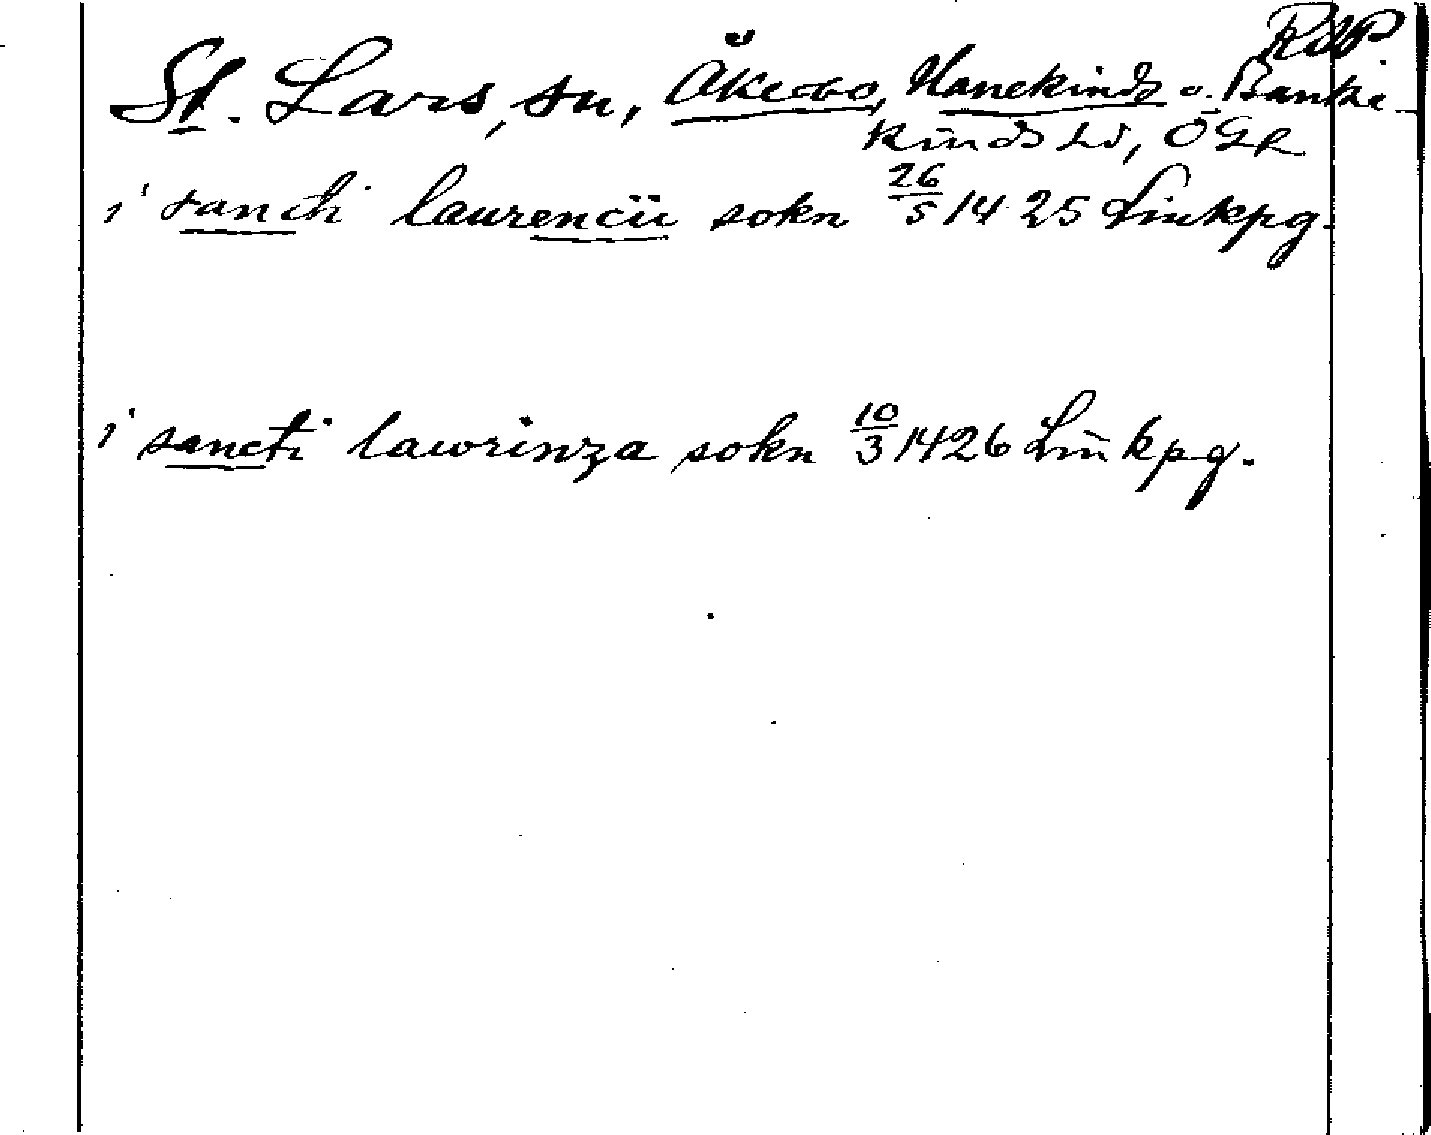 RAP
St. Lars, sn, Åkerbo, Hanekinds o. Banke-
kinds hd, ÖGL
i sancti laurencii sokn 26/5 1425 Linkpg.
i sancti lawrinza sokn 10/3 1426 Linkpg.